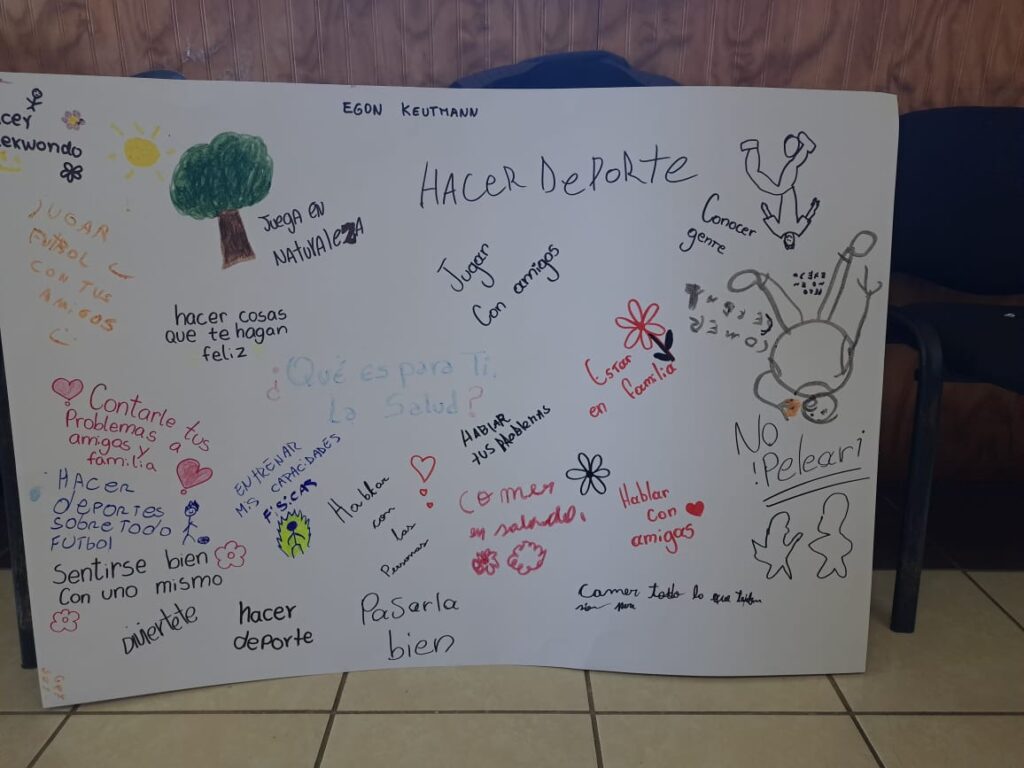 EGON KEUTMANN
HACER DEPORTE
JUEGA EN
NATURALEZA
Conocer
genre
JUGAR
FUTBOL
CON TUS
AMIGOS
Jugar
Con amigos
hacer cosas
que te hagan
feliz
¿Qué es para Ti,
La Salud?
Estar
en familia
COMER
Contarle tus
Problemas a
amigas y
familia
HABLAR
tus Problemas
NO
¡Pelear¡
HACER
deportes
SOBRE TODO
FUTBOL
ENTRENAR
MIS CAPACIDADES
FISICAS
Hablar
con
las
Personas
comer
Hablar
con
amigas
Sentirse bien
Con uno mismo
Diviertete
hacer
deporte
Pasarla
bien
Comer todo lo que